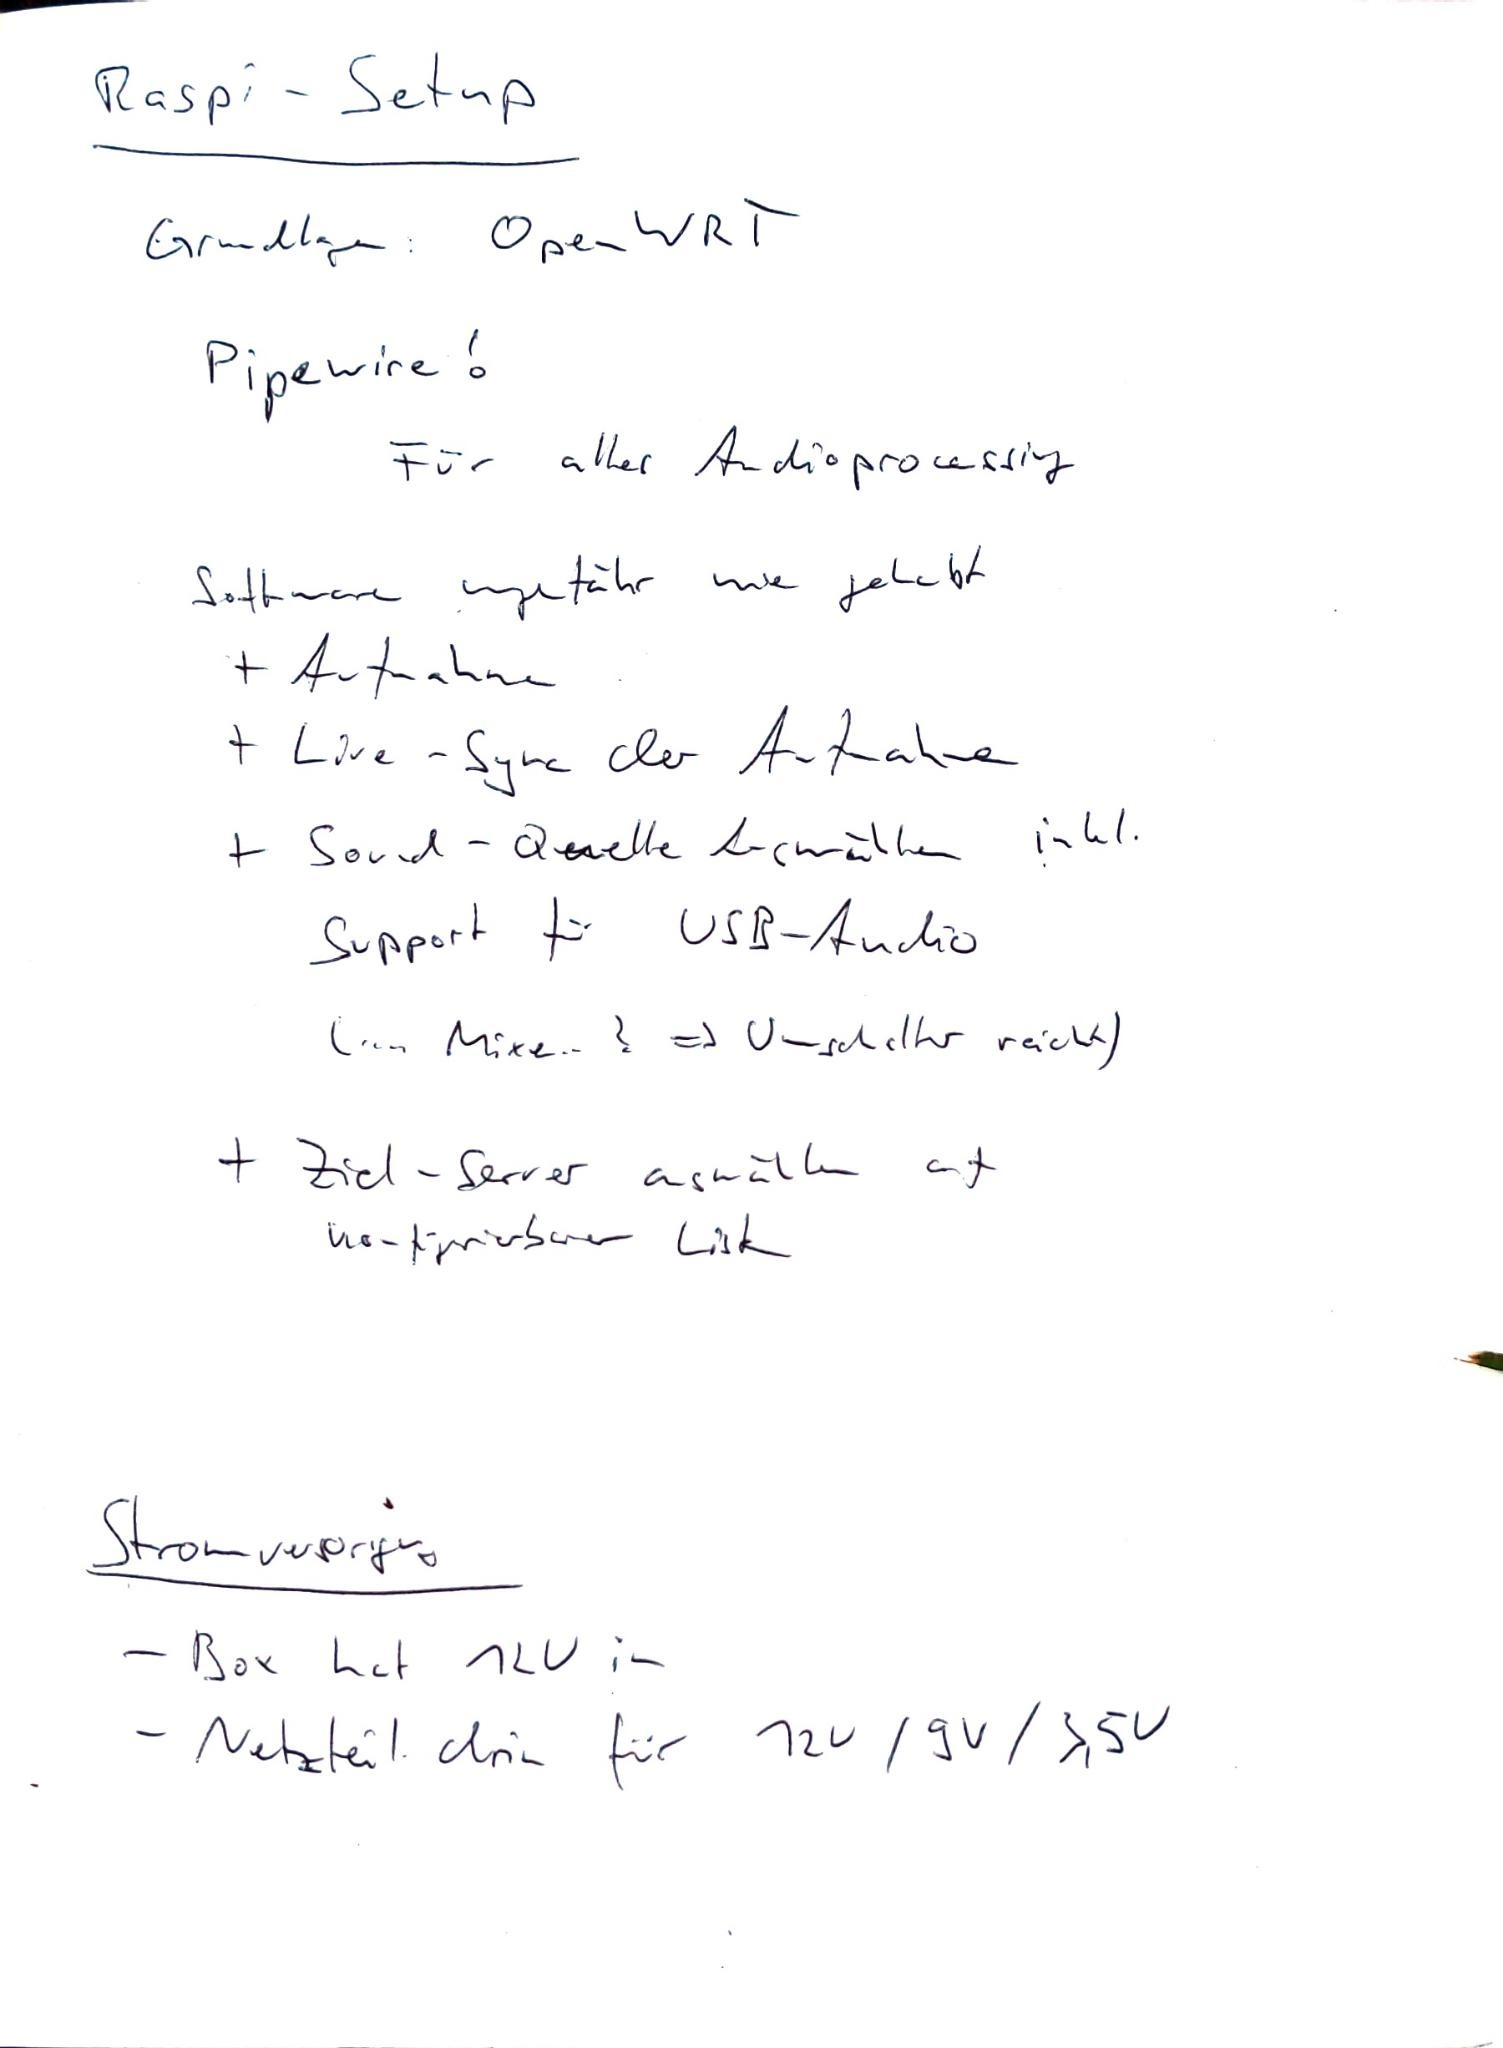 Raspi - Setup
Grundlagen: OpenWRT
Pipewire!
Für alles Audioprocessing
Software ungefähr wie gehabt
+ Aufnahme
+ Live - Sync der Aufnahme
+ Sound - Quelle Auswählen inkl.
Support für USB-Audio
( Mixen..? => Umschalter reicht)
+ Ziel - Server auswählen auf
konfigurierbarer Liste
Stromversorgung
- Box hat 12V in
- Netzteil drin für 12V / 9V / 3,5V